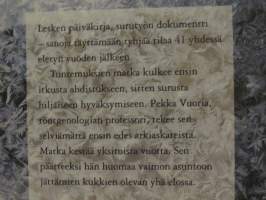 Lesken päiväkirja, surutyön dokumentti
– sanoja täyttämään tyhjää tilaa 41 yhdessä
eletyn vuoden jälkeen.
Tuntemuksien matka kulkee ensin
itkusta ahdistukseen, sitten surusta
hiljaiseen hyväksymiseen. Pekka Vuoria,
röntgenologian professori, tekee sen
selviämättä ensin edes arkiaskareista.
Matka kestää yksitoista vuotta. Sen
päätteeksi hän huomaa vaimon asuntoon
jättämien kukkien olevan yhä elossa.